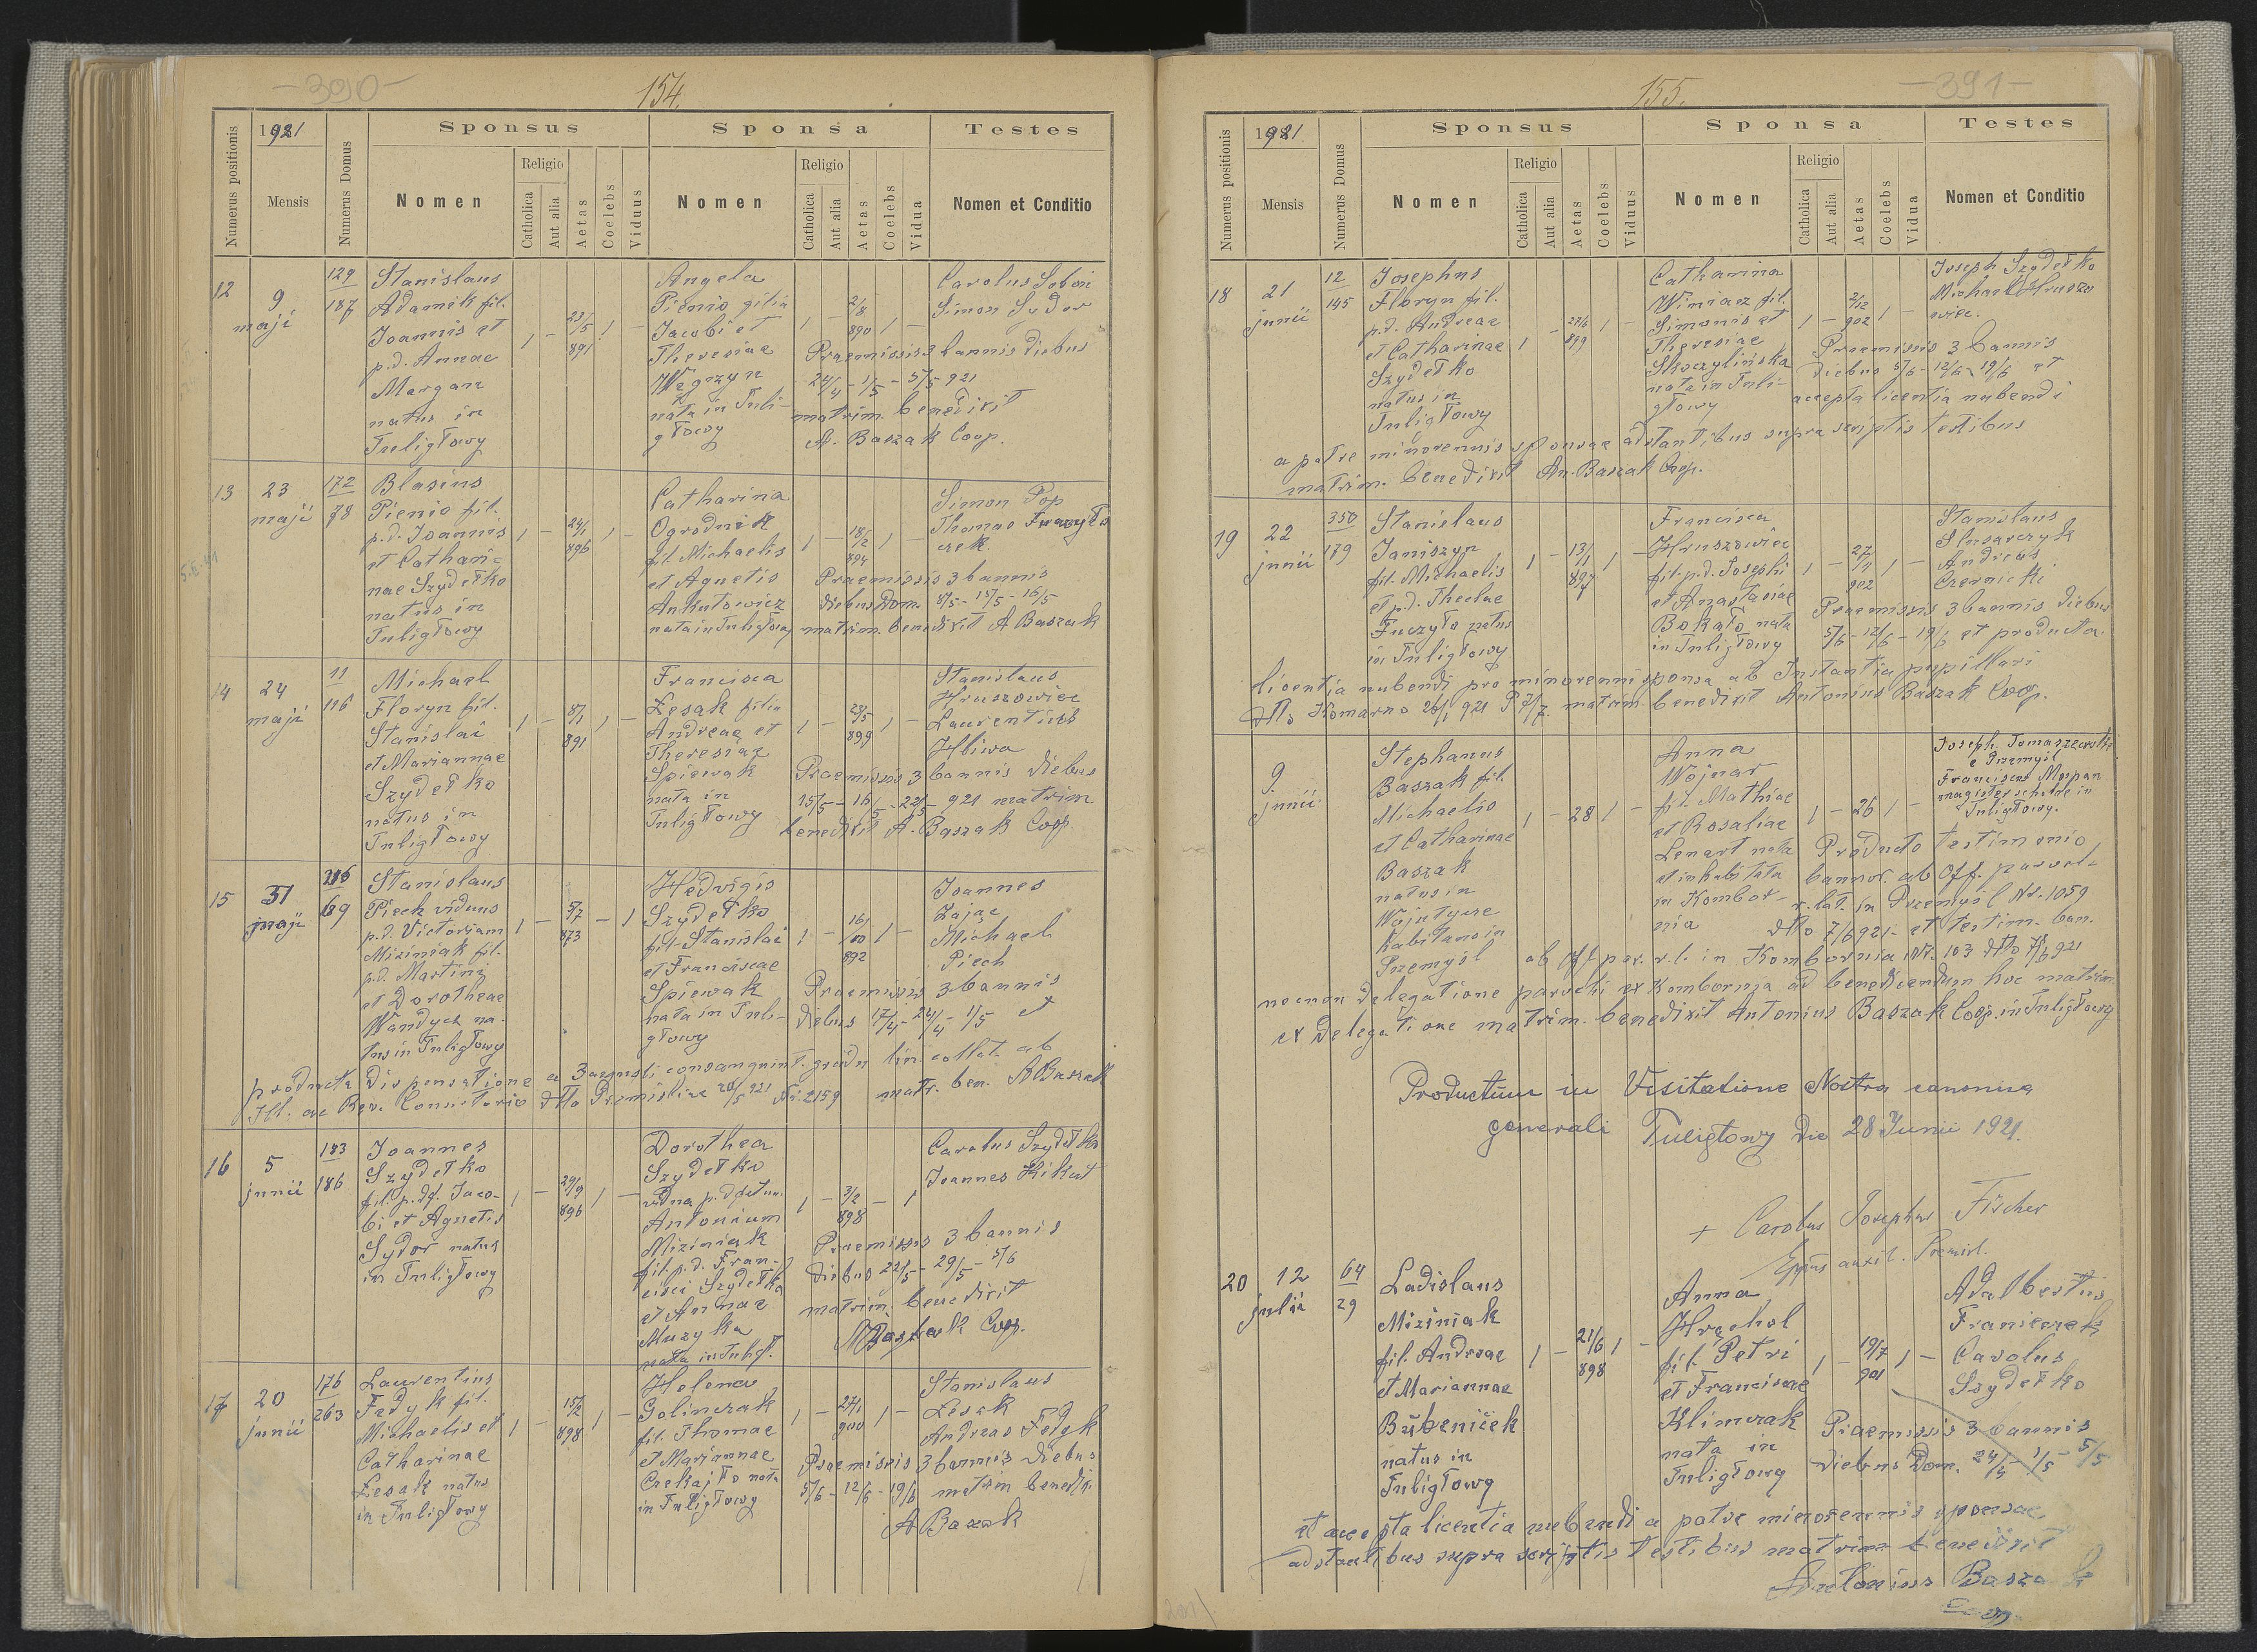 -390-
154.
1921
Numerus positionis
Mensis
Numerus Domus
Sponsus
Sponsa
Testes
Nomen
Religio
Catholica
Aut alia
Aetas
Coelebs
Viduus
Nomen
Religio
Catholica
Aut alia
Aetas
Coelebs
Vidua
Nomen et Conditio
12
9
maji
129
187
Stanislaus
Adamik fil.
Joannis et
p.d. Annae
Margan
natus in
Tuligłowy
1 - 23/5 891 1 -
Angela
Pienio filia
Jacobi et
Theresiae
Węgrzyn
nata in Tuli-
głowy
1 - 2/8 890 1 -
Carolus Soboń
Simon Sydor
Praemissis 3 bannis diebus
24/4 - 1/5 - 5/5 921
matrim. benedixit
A. Baszak Coop.
13
23
maji
172
78
Blasius
Pienio fil.
p.d. Joannis
et Cathari-
nae Szydełko
natus in
Tuligłowy
1 - 24/1 896 1 -
Catharina
Ogrodnik
fil. Michaelis
et Agnetis
Ankutowicz
nata in Tuligłowy
1 - 18/2 894 1 -
Simon Pop
Thomas
czek.
Praemissis 3 bannis
diebus Dom. 8/5 - 15/5 - 16/5
matrim. benedixit A Baszak
14
24
maji
11
116
Michael
Floryn fil.
Stanislai
et Mariannae
Szydełko
natus in
Tuligłowy
1 - 8/1 891 1 -
Francisca
Łesak filia
Andreae et
Theresiae
Spiewak
nata in
Tuligłowy
1 - 23/5 899 1 -
Stanislaus
Hruszowiec
Laurentius
Hliwa
Praemissis 3 bannis diebus
15/5 - 16/5 - 22/5 921 matrim
benedixit A. Baszak Coop.
15
31
maji
69
Stanislaus
Piech viduus
p.d. Victoriam
Miziniak fil.
p.d. Martini
et Dorotheae
Wandych na-
tus in Tuligłowy
1 - 5/7 873 - 1
Hedvigis
Szydełko
fil. Stanislai
et Franciscae
Spiewak
nata in Tuli-
głowy
1 - 16/10 892 1 -
Joannes
Zając
Michael
Piech
Praemissis 3 bannis
diebus 17/4 - 24/4 - 1/5 et
producta dispensatione a 3 aequali consanguinit. gradu lin. collat. ab
Ill. ac Rev. Consistorio dtto Premisliae 20/5 921 Nr. 2159 matr. ben. A Baszak
16
5
junii
183
186
Joannes
Szydełko
fil. p.df. Jaco-
bi et Agnetis
Sydor natus
in Tuligłowy
1 - 29/9 896 1 -
Dorothea
Szydełko
vidua p. defun.
Antonium
Miziniak
fil. p.d. Fran-
cisci Szydełko
et Annae
Muzyka
nata in Tuligł.
1 - 3/2 898 - 1
Carolus Szydełko
Joannes Kikut
Praemissis 3 bannis
diebus 22/5 - 29/5 - 5/6
matrim. benedixit
A Baszak Coop.
17
20
junii
176
263
Laurentius
Fedyk fil.
Michaelis et
Catharinae
Łesak natus
in Tuligłowy
1 - 15/2 898 1 -
Helena
Golinczak
fil. Thomae
et Mariannae
Czekajło nata
in Tuligłowy
1 - 27/1 900 1 -
Stanislaus
Łesak
Andreas Fedyk
Praemissis 3 bannis diebus
5/6 - 12/6 - 19/6 matrim benedixi
A Baszak
155.
-391-
1921
Numerus positionis
Mensis
Numerus Domus
Sponsus
Sponsa
Testes
Nomen
Religio
Catholica
Aut alia
Aetas
Coelebs
Viduus
Nomen
Religio
Catholica
Aut alia
Aetas
Coelebs
Vidua
Nomen et Conditio
18
21
junii
12
145
Josephus
Floryn fil.
p.d. Andreae
et Catharinae
Szydełko
natus in
Tuligłowy
1 - 27/6 899 1 -
Catharina
Winiarz fil.
Simonis et
Theresiae
Skoczylińska
nata in Tuli-
głowy
1 - 2/12 902 1 -
Joseph Szydełko
Michael Hruszo
wiec.
Praemissis 3 bannis
diebus 5/6 - 12/6 - 19/6 et
accepta licentia nubendi
a patre minorennis sponsae adstantibus supra scriptis testibus
matrim. benedixit An. Baszak Coop.
19
22
junii
350
179
Stanislaus
Janiszyn
fil. Michaelis
et p.d. Theclae
Fuczyło natus
in Tuligłowy
1 - 13/1 897 1 -
Francisca
Hruszowiec
fil. p.d. Josephi
et Anastasiae
Bokało nata
in Tuligłowy
1 - 27/1 902 1 -
Stanislaus
Slusarczyk
Andreas
Czernicki
Praemissis 3 bannis diebus
5/6 - 12/6 - 19/6 et producta
licentia nubendi pro minorenni sponsa ab Instantia pupillari
dtto Komarno 26/1 921 P 7/7. matrim. benedixit Antonius Baszak Coop.
9
junii
Stephanus
Baszak fil.
Michaelis
et Catharinae
Baszak
natus in
habitans in
Przemyśl
1 - 28 1 -
Anna
Wojnar
fil. Mathiae
et Rosaliae
Lenart nata
et inhabitata
in Kombor-
nia
1 - 26 1 -
Joseph. Tomaszewski
e Przemyśl
Franciscus Marpan
magister scholae in
Tuligłowy.
Producto testimonio
bannor. ab Off. paroch.
r. lat. in Przemyśl Nr. 1059
dtto 7/6 921 - et testim. ban.
ab Off par. r.l. in Kombornia Nr. 103 dtto 7/6 921
necnon delegatione parochi ex Kombornia ad benedicendum hoc matrim.
ex delegatione matrim. benedixit Antonius Baszak Coop. in Tuligłowy
Productum in Visitatione Nostra canonica
generali Tuligłowy die 28 Junii 1921.
+ Carolus Josephus Fischer
Eppus auxil. Premisl.
20
12
julii
64
29
Ladislaus
Miziniak
fil. Andreae
et Mariannae
Bubeniček
natus in
Tuligłowy
1 - 21/6 898 1 -
Anna
Hrechol
fil. Petri
et Franciscae
Klimczak
nata in
Tuligłowy
1 - 19/7 901 1 -
Adalbertus
Franiczek
Carolus
Szydełko
Praemissis 3 bannis
diebus Dom. 24/4 - 1/5 - 5/5
et accepta licentia nubendi a patre minorennis sponsae
adstantibus supra scriptis testibus matrim benedixit
Antonius Baszak
Coop.